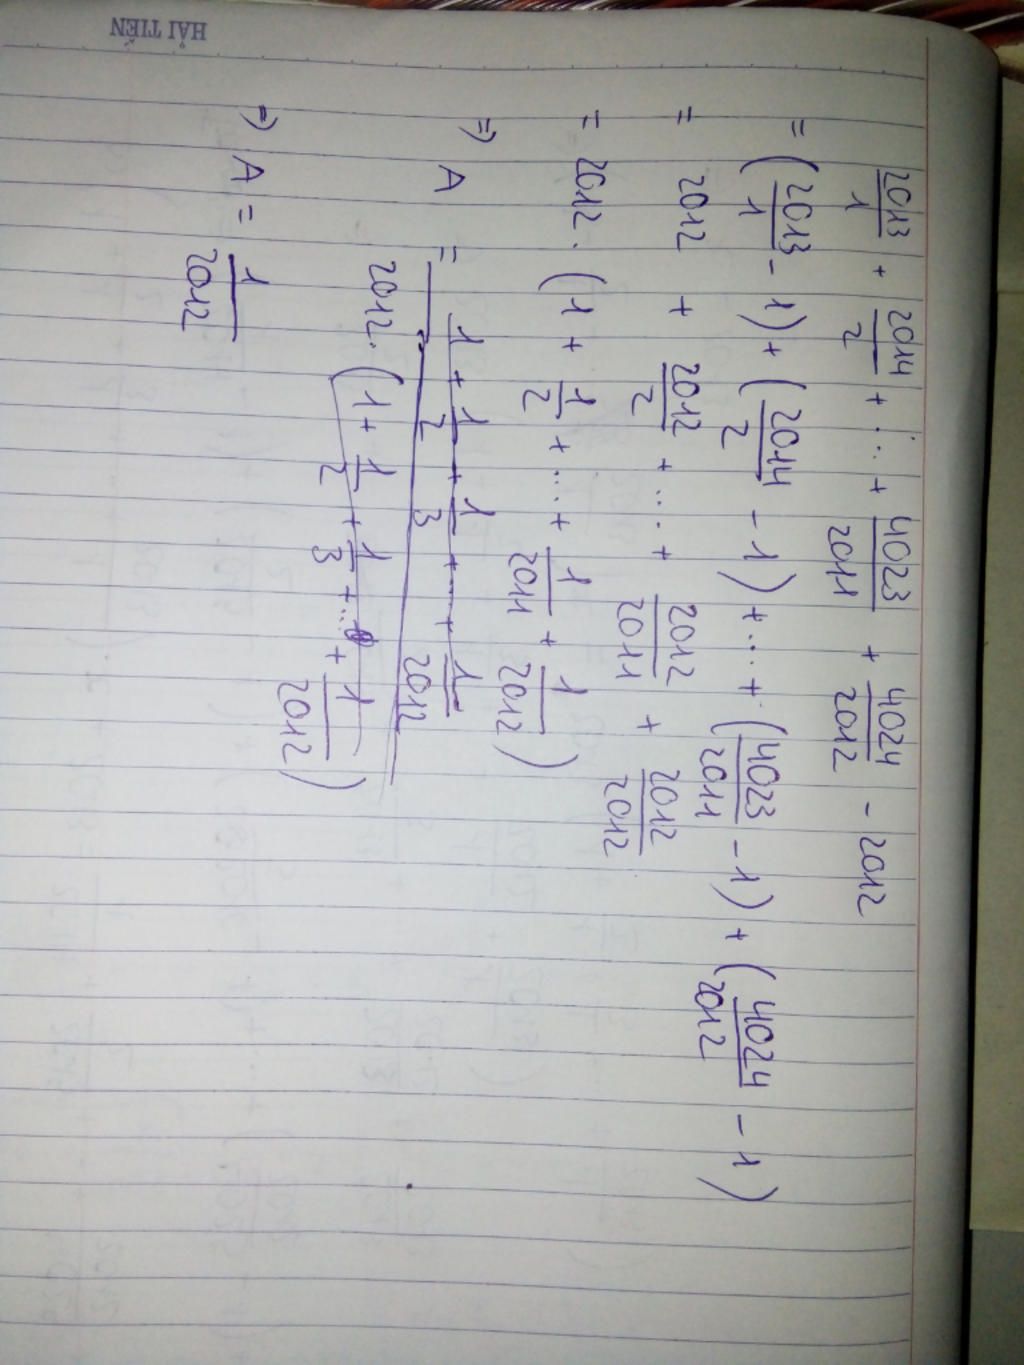 HẢI TIẾN
2013/1 + 2014/2 + ... + 4023/2011 + 4024/2012 - 2012
= (2013/1 - 1) + (2014/2 - 1) + ... + (4023/2011 - 1) + (4024/2012 - 1)
= 2012 + 2012/2 + ... + 2012/2011 + 2012/2012
= 2012. (1 + 1/2 + ... + 1/2011 + 1/2012)
=) A = (1 + 1/2 + 1/3 + ... + 1/2012) / (2012. (1 + 1/2 + 1/3 + ... + 1/2012))
=) A = 1/2012